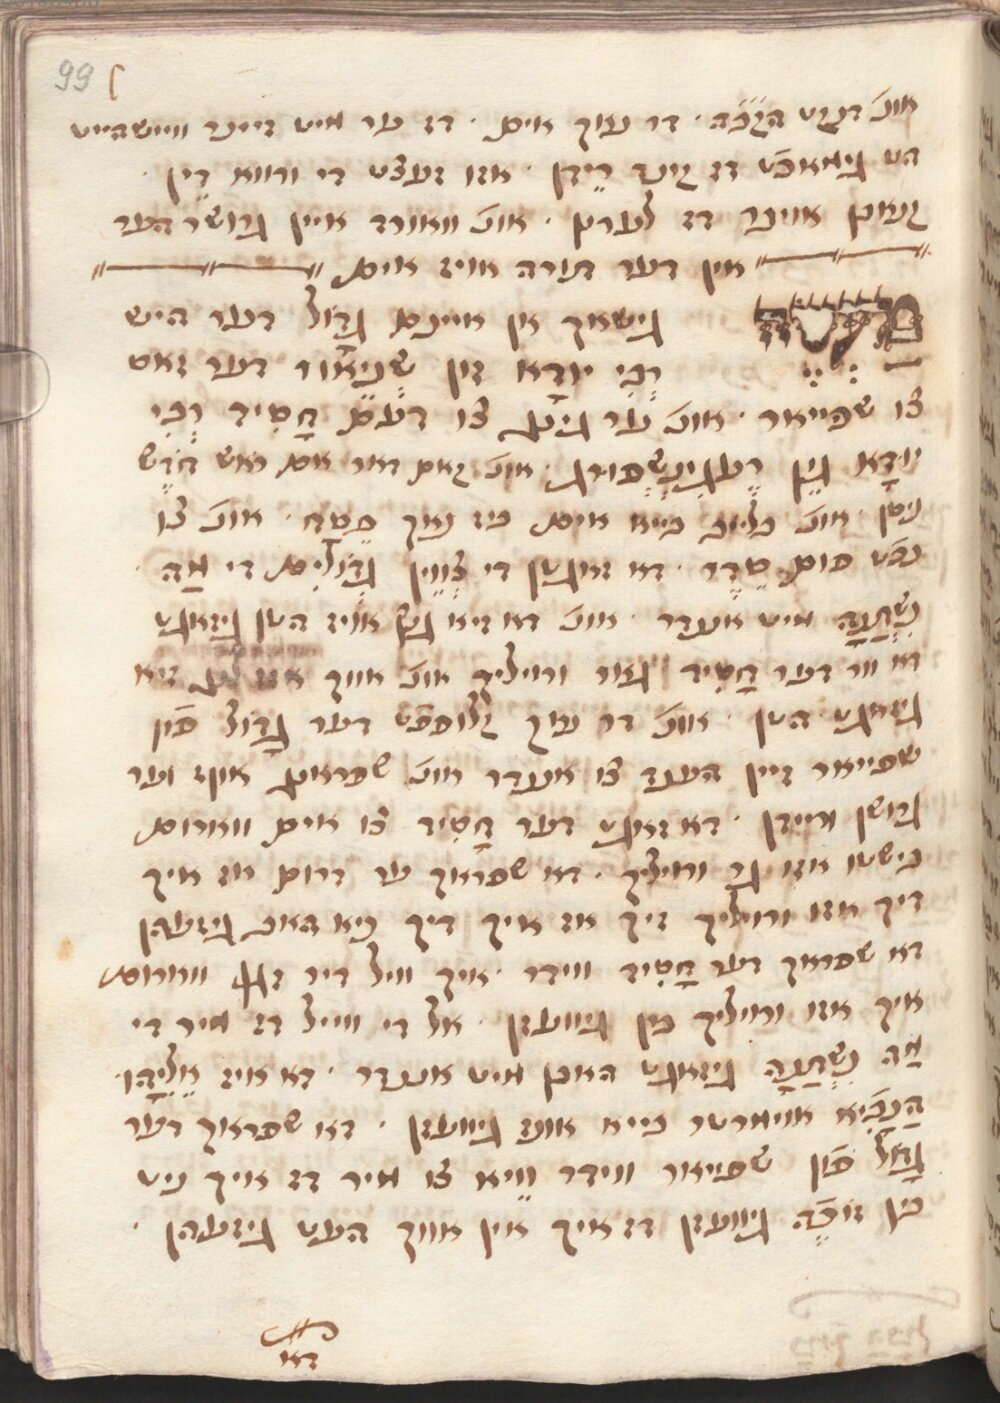 99
אונ' דנקט הקב"ה · דר נוך אים · דז ער מיט זיינר ווייזהייט
הט גימאכט דז קינד רֵידן · אזו זעצט די ורווא דִין ·
קנעבן אויבר דז לערנן · אונ' ווארד איין גרושר הער
אין דער תורה אויז אים
גישאך אן איינם גָדוֹל דער היש
רְבִּי יוּדָא זון שְׁנֵיאוֹר דער זאט
צו שפייאר · אונ' ער גינג צו דעם חָסִיד רְבִּי
יוּדָא גֵין רֶעגִנְשְׁפּורג · אונ' קאם דאר אם ראש חֹדֶשׁ
ניסן · אונ' בלייב בייא אים ביז נאך פֶּסַח · אונ' צו
נכט פום סֵדֶר · דא זאגטן די צְוֵויִן גְדוֹלִים די מַה
נִשְׁתַּנָה מיט אנעדר · אונ' דא זיא גנץ אויז הטן גיזאגט
דא וור דער חָסִיד גאר ורויליך אונ' אווך אז זיא
גיזאגט הטן · אונ' דר נוך קלופפט דער גָדוֹל פון
שפייאר זיין הענד צו אנעדר אונ' שפראנג אונז ער
גרושן ורײדן · דא זאגט דער חָסִיד צו אים ווארום
בישטו אזו גר ורויליך · דא שפראך ער דרום אז איך
דיך אזו ורויליך זיך אז איך דיך ניא האב גיזעהן
דא שפראך דער חָסִיד ווידר · איך וויל דיר זגן ווארום
איך אזו ורויליך בין גיוועזן · אל די ווייל דז מיר די
מַה נִשְׁתַּנָה גיזאגט האבן מיט אנעדר · דא איז אֵלִיָהוּ
הַנָבִיא אוימרטר בייא אונז גיוועזן · דא שפראך דער
גָדוֹל פון שפייאר ווידר וֵויא צו מיר דז איך ניט
בין זוֹכֶה גיוועזן דז איך אין אווך העט גיזעהן ·
דא